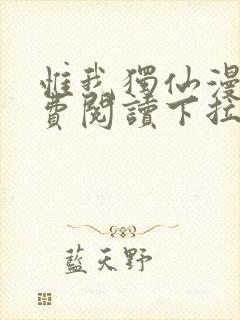 惟我獨仙漫
費閱讀下拉
藍天野